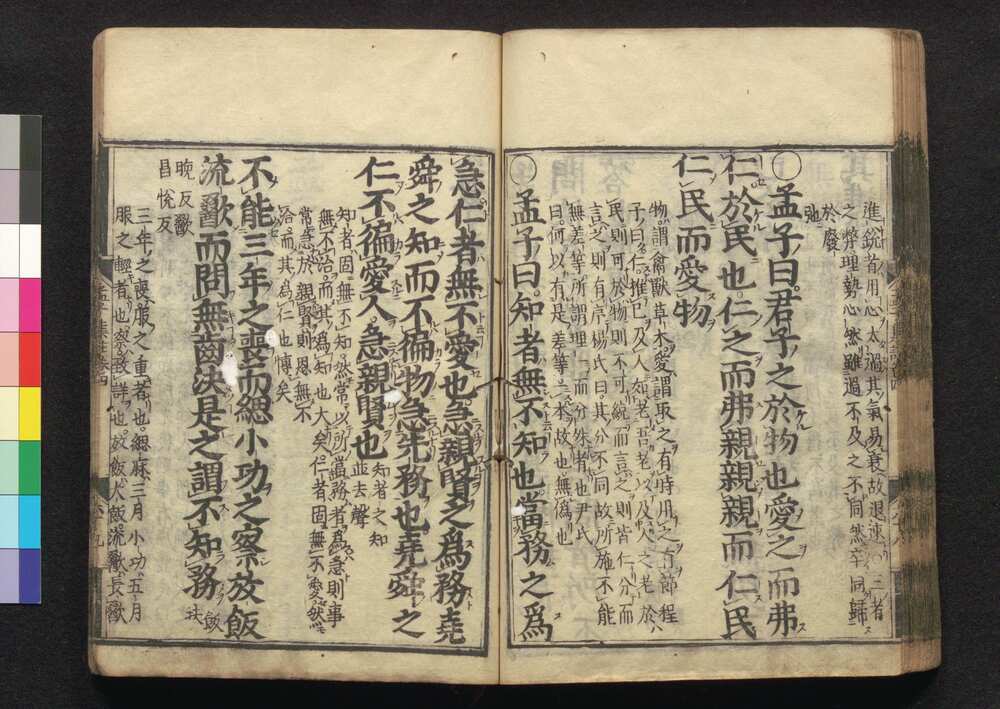 進銳者用心太過其氣易衰故退速○三者
之弊理勢必然雖過不及之不同然卒同歸
於廢
弛
○孟子曰。君子之於物也愛之而弗
仁於民也。仁之而弗親親親而仁民
仁民而愛物
物謂禽獸草木愛謂取之有時用之有節程
子曰仁推己及人如老吾老以及人之老於
民則可於物則不可統而言之則皆仁分而
言之則有序楊氏曰其分不同故所施不能
無差等所謂理一而分殊者也尹氏
曰何以有是差等一本故也無僞也
○孟子曰。知者無不知也。當務之爲
急仁者無不愛也急親賢之爲務堯
舜之知而不徧物急先務也堯舜之
仁不徧愛人。急親賢也
知者之知
並去聲
知者固無不知然常以所當務者爲急則事
無不治而其爲知也大矣仁者固無不愛然
常急於親賢則恩無不
洽而其爲仁也博矣
不能三年之喪而緦小功之察放飯
流歠而問無齒決是之謂不知務
飯
扶
晚反歠
昌悅反
三年之喪服之重者也緦麻三月小功五月
服之輕者也察致詳也放飯大飯流歠長歠